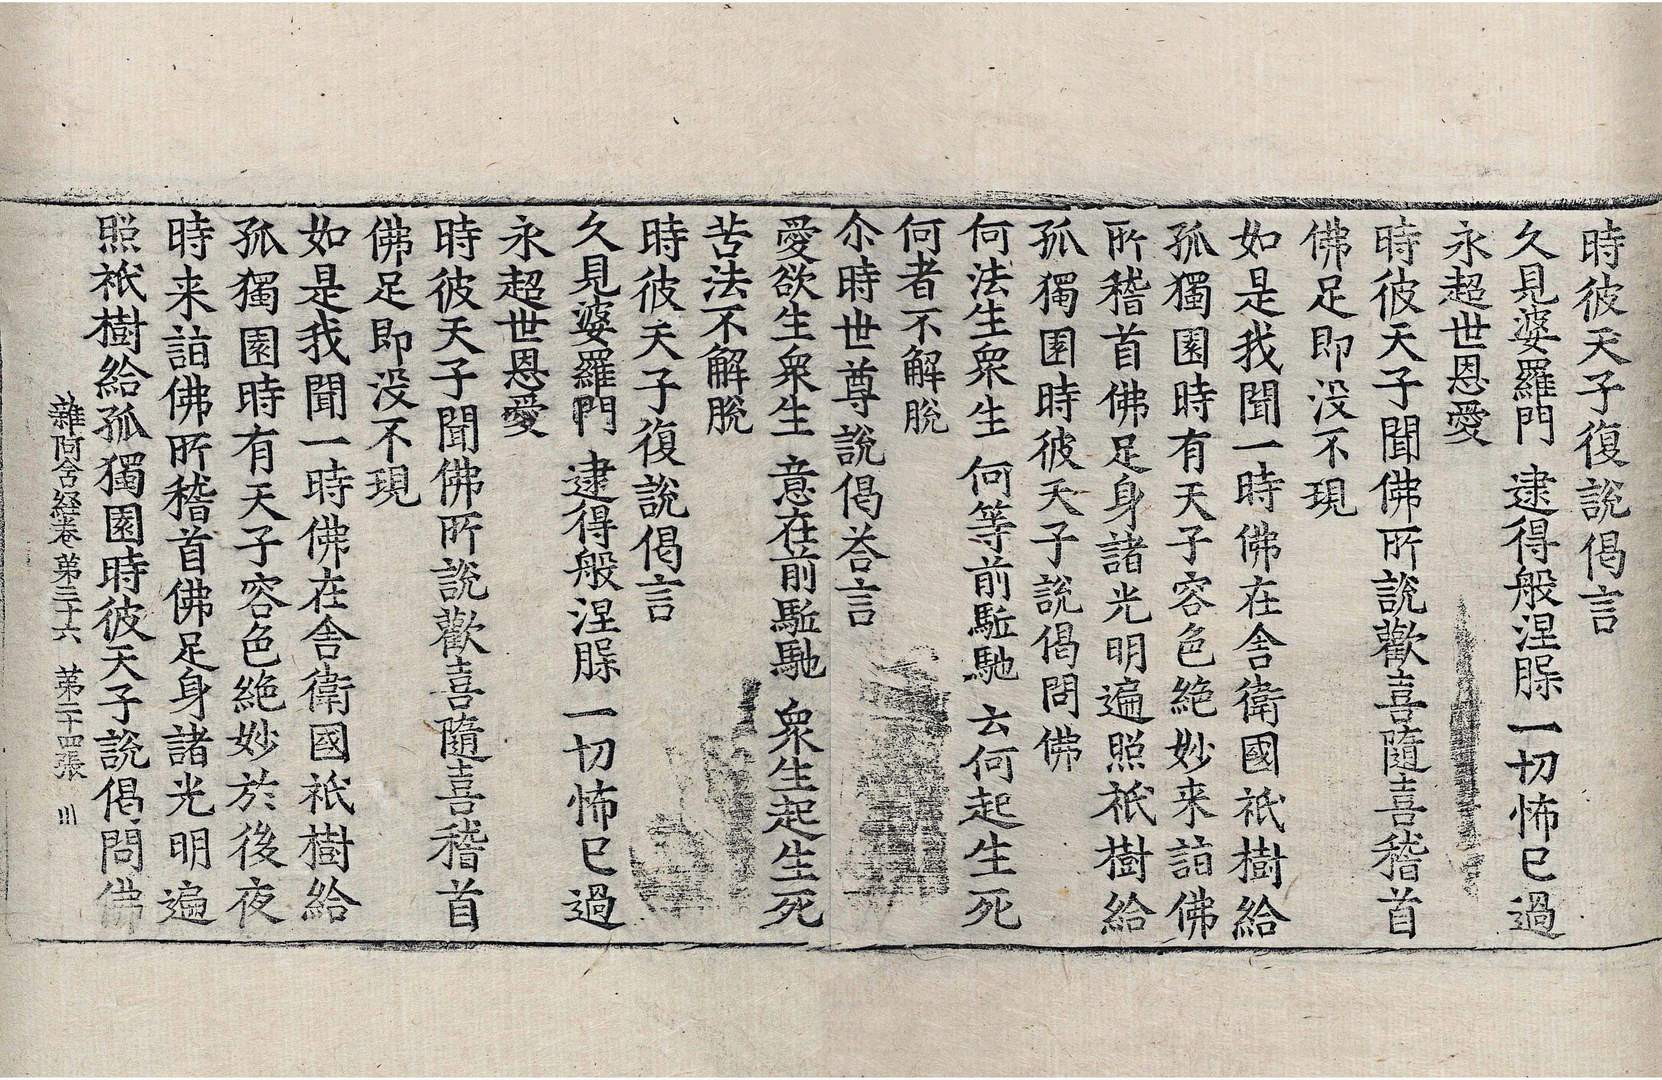 時彼天子復說偈言
久見婆羅門 逮得般涅槃 一切怖已過
永超世恩愛
時彼天子聞佛所說歡喜隨喜稽首
佛足即没不現
如是我聞一時佛在舍衛國祇樹給
孤獨園時有天子容色絶妙来詣佛
所稽首佛足身諸光明遍照祇樹給
孤獨園時彼天子說偈問佛
何法生衆生 何等前駈馳 云何起生死
何者不解脫
尒時世尊說偈荅言
愛欲生衆生 意在前駈馳 衆生起生死
苦法不解脫
時彼天子復說偈言
久見婆羅門 逮得般涅槃 一切怖已過
永超世恩愛
時彼天子聞佛所說歡喜隨喜稽首
佛足即没不現
如是我聞一時佛在舍衛國祇樹給
孤獨園時有天子容色絶妙於後夜
時来詣佛所稽首佛足身諸光明遍
雜阿含経卷第三十六 第二十四張
照祇樹給孤獨園時彼天子說偈問佛